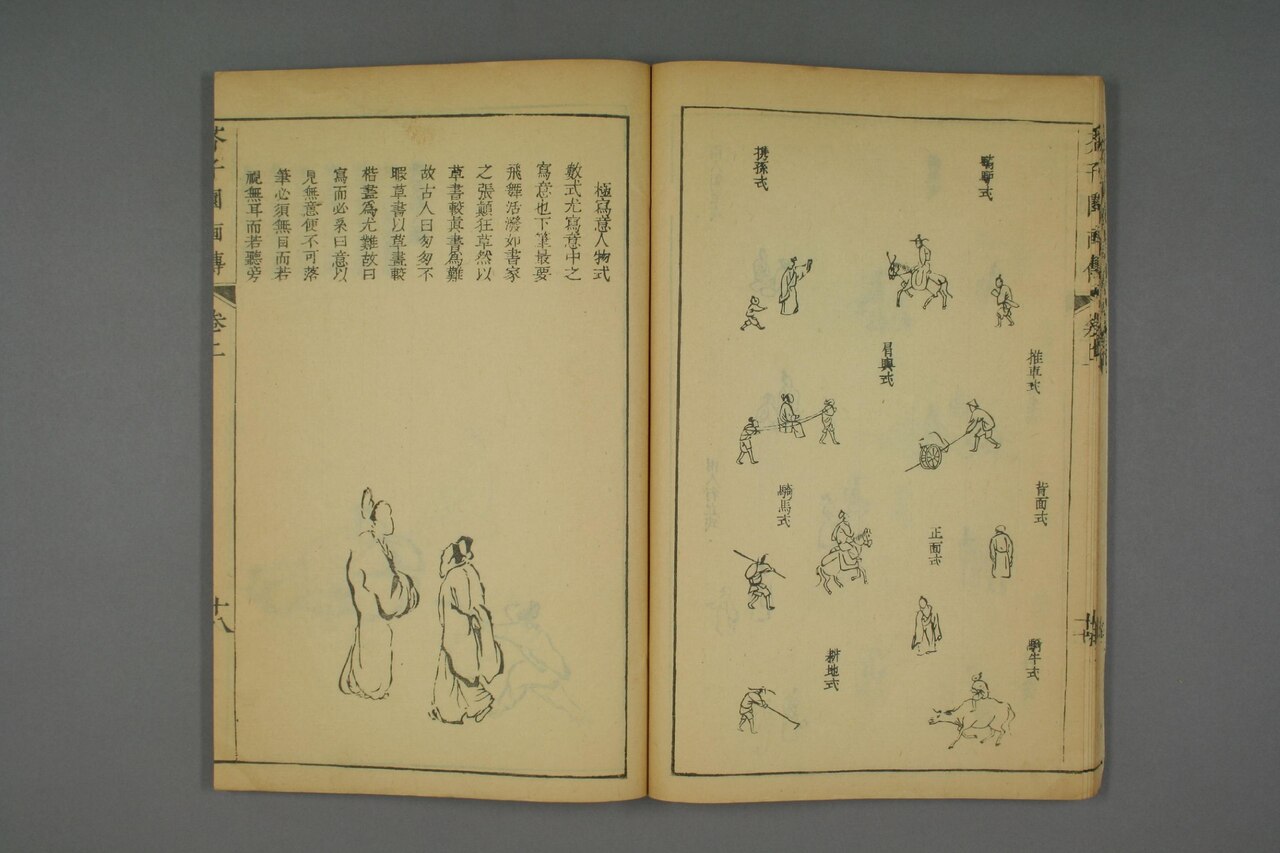 騎驢式
推車式
背面式
騎牛式
正面式
肩輿式
耕地式
騎馬式
携孫式
極寫意人物式
數式尤寫意中之
寫意也下筆最要
飛舞活潑如書家
之張顛狂草然以
草書較眞書爲難
故古人曰匆匆不
暇草書以草畫較
楷畫爲尤難故曰
寫而必系曰意以
見無意便不可落
筆必須無目而若
視無耳而若聽旁
芥子園畫傳
卷二
十八